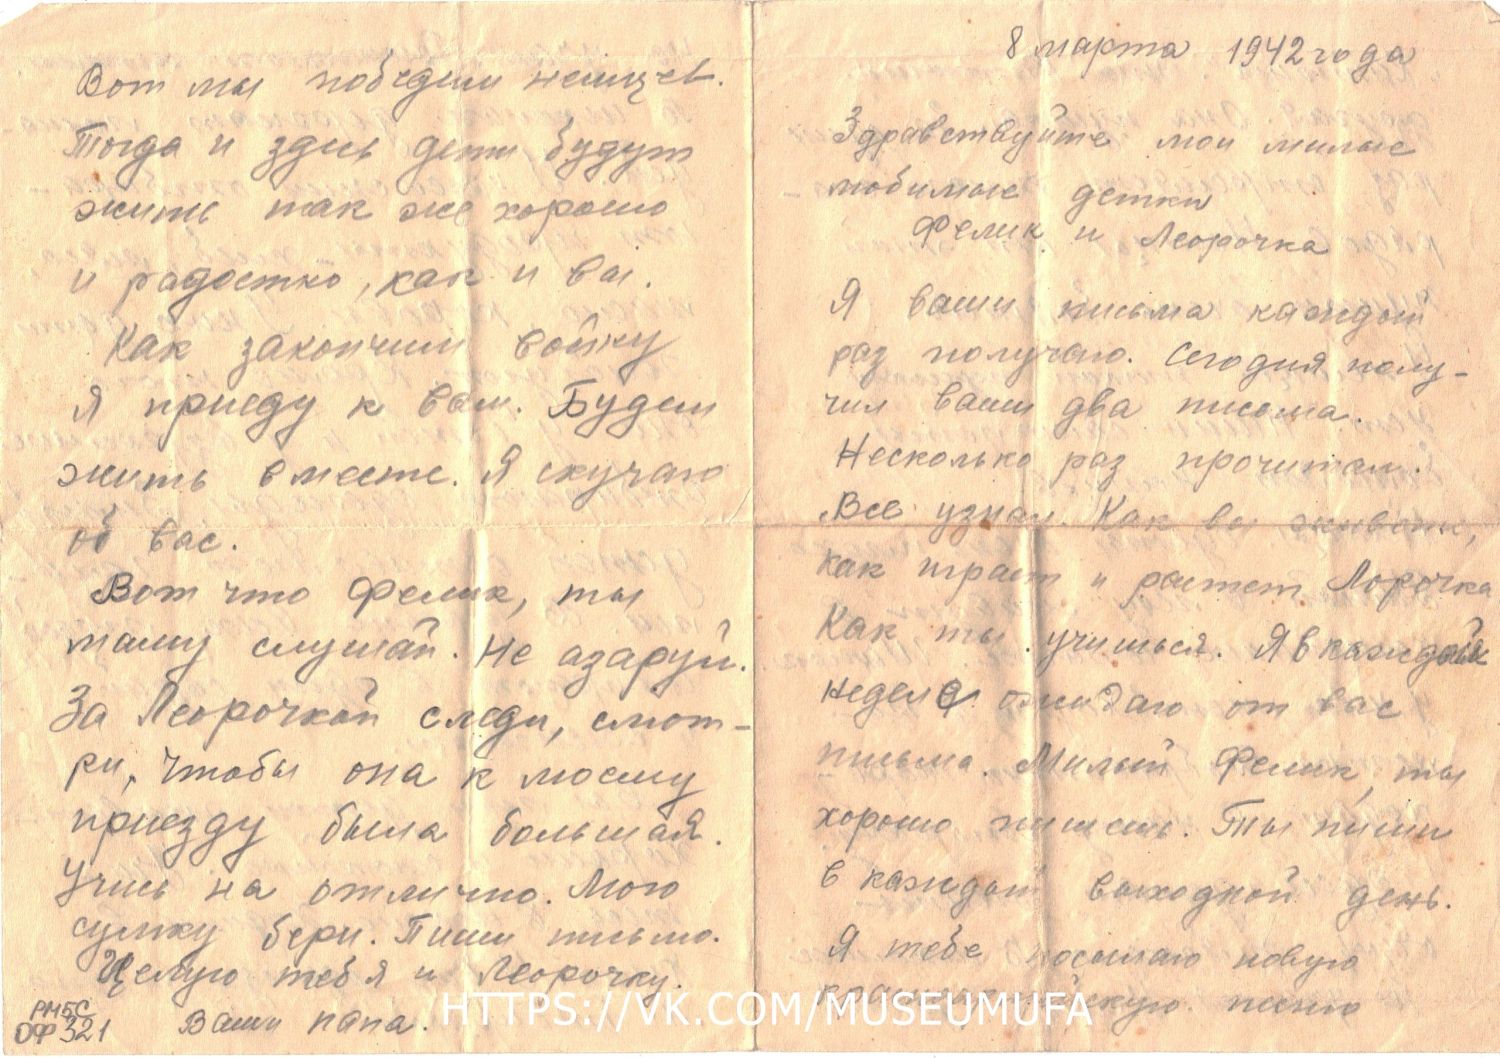 8 марта 1942 года
Здравствуйте мои милые
любимые детки
Фелик и Леорочка
Я ваши письма каждый
раз получаю. Сегодня полу-
чил ваши два письма.
Несколько раз прочитал.
Все узнал. Как вы живёте,
как играет и растет Лорочка
Как ты учишься. Я в каждой
неделе ожидаю от вас
письма. Милый Фелик, ты
хорошо пишешь. Ты пиши
в каждый выходной день.
Я тебе посылаю новую
красноармейскую песню
Вот мы победим немцев.
Тогда и здесь дети будут
жить так же хорошо
и радостно, как и вы.
Как закончим войну
я приеду к вам. Будем
жить вместе. Я скучаю
об вас.
Вот что Фелик, ты
маму слушай. Не азаруй.
За Леорочкой следи, смот-
ри, чтобы она к моему
приезду была большая.
Учись на отлично. Мою
сумку бери. Пиши письмо.
Целую тебя и Леорочку.
Ваш папа.
РМБС
ОФ 321
HTTPS://VK.COM/MUSEUMUFA